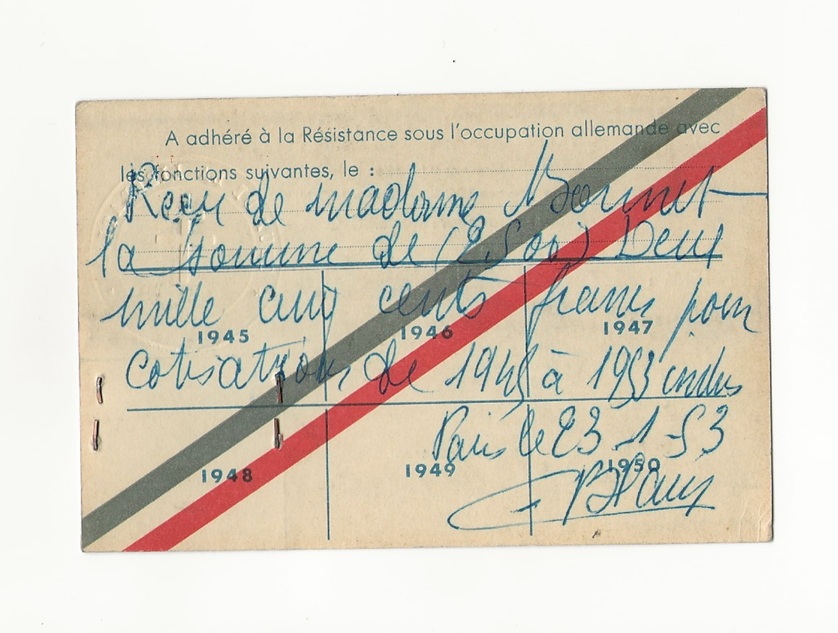 A adhéré à la Résistance sous l'occupation allemande avec
les fonctions suivantes, le :
Reçu de madame Bonnet
la somme de (2500) Deux
mille cinq cents francs pour
1945 1946 1947
cotisations de 1945 à 1953 inclus
Paris le 23-1-53
1948 1949 1950